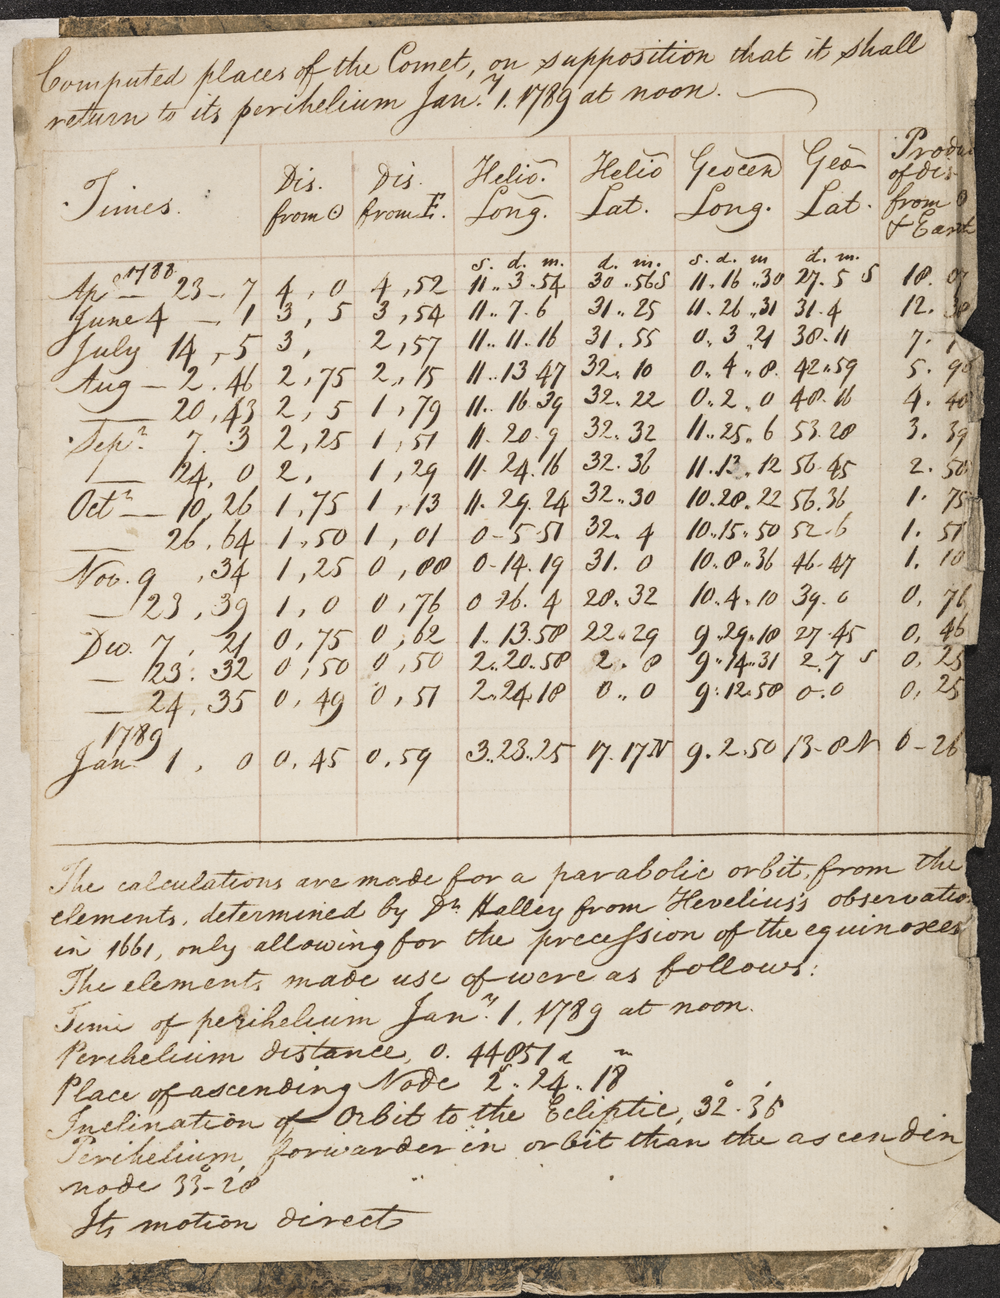 Computed places of the Comet, on supposition that it shall
return to its perihelium Jan.y 1. 1789 at noon.
Times. Dis. from ☉ Dis. from E. Helio. Long. Helio Lat. Geocen Long. Geo Lat. Produ of dis- from ☉ & Earth
s. d. m. d. m. s. d. m d. m.
1788
Apl — 23 – 7 4 , 0 4 , 52 11.. 3.54 30 .. 56 S 11..16 ..30 27. 5 S 18. 07
June 4 — , 1 3 , 5 3 , 54 11.. 7. 6 31 .. 25 11..26 ..31 31. 4 12. 38
July 14 , 5 3 , 2 , 57 11.. 11. 16 31 . 55 0. 3 .21 38. 11 7. 1
Aug — 2 . 46 2 , 75 2 , 15 11..13 47 32. 10 0. 4 .. 8. 42..59 5. 9
— 20 , 43 2 , 5 1 , 79 11.. 16 39 32. 22 0. 2 .. 0 48. 16 4. 48
Sepr. 7 . 3 2 , 25 1 , 51 11. 20. 9 32. 32 11..25 .. 6 53. 28 3. 39
— 24, 0 2 , 1 , 29 11. 24. 16 32. 36 11.13 .. 12 56. 45 2. 58
Octr — 10, 26 1 , 75 1 , 13 11. 29. 24 32.. 30 10.28 .. 22 56. 36 1. 75
— 26 , 64 1 , 50 1 , 01 0 – 5 51 32. 4 10..15 .. 50 52. 6 1. 51
Nov. 9 , 34 1 , 25 0 , 88 0 – 14. 19 31. 0 10. 8 .. 36 46. 47 1. 10
— 23 , 39 1 , 0 0 , 76 0 26. 4 28. 32 10. 4 . 10 39. 0 0. 76
Dec. 7 , 21 0 , 75 0 , 62 1. 13.58 22.. 29 9..29..18 27. 45 0. 46
— 23 . 32 0 , 50 0 , 50 2..20.58 2.. 8 9..14..31 2.. 7 S 0. 25
— 24 , 35 0 , 49 0 , 51 2..24.18 0.. 0 9. 12.58 0. 0 0, 25
1789
Jan. 1 , 0 0 , 45 0 , 59 3..23..25 17. 17 N 9. 2.50 13 – 8 N 0 – 26
The calculations are made for a parabolic orbit, from the
elements, determined by Dr. Halley from Hevelius's observatio
in 1661, only allowing for the precession of the equinoxes
The elements made use of were as follows:
Time of perihelium Jany. 1. 1789 at noon.
Perihelium distance, 0. 44851
Place of ascending Node 2s.. 24d.. 18m
Inclination of Orbit to the Ecliptic, 32°. 36'
Perihelium, forwarder in orbit than the ascendin
node 33° – 28'
Its motion direct